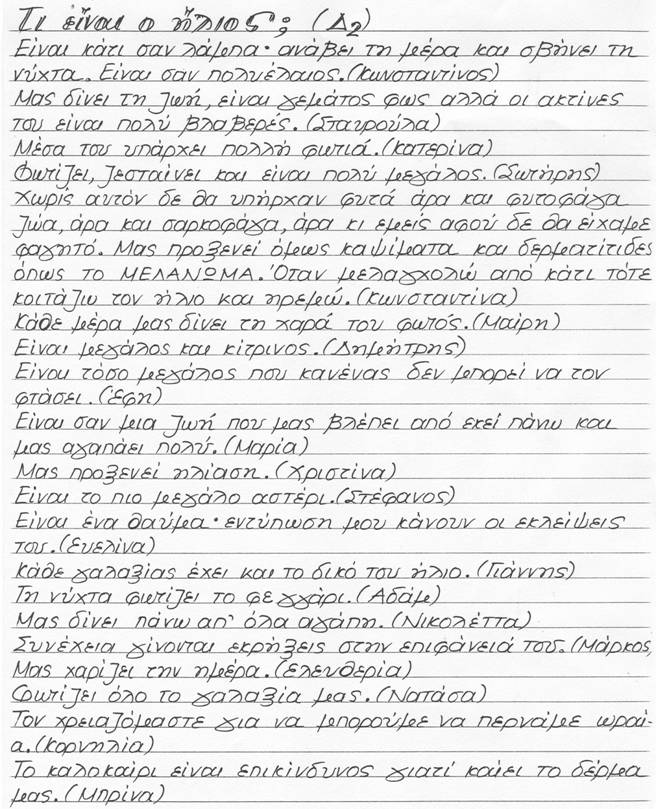 Τι εἶναι ο ἥλιος; (Δ2)
Είναι κάτι σαν λάμπα· ανάβει τη μέρα και σβήνει τη
νύχτα. Είναι σαν πολυέλαιος. (Κωνσταντίνος)
Μας δίνει τη ζωή, είναι γεμάτος φως αλλά οι ακτίνες
του είναι πολύ βλαβερές. (Σταυρούλα)
Μέσα του υπάρχει πολλή φωτιά. (Κατερίνα)
Φωτίζει, ζεσταίνει και είναι πολύ μεγάλος. (Σωτήρης)
Χωρίς αυτόν δε θα υπήρχαν φυτά άρα και φυτοφάγα
ζώα, άρα και σαρκοφάγα, άρα κι εμείς αφού δε θα είχαμε
φαγητό. Μας προξενεί όμως καψίματα και δερματίτιδες
όπως το ΜΕΛΑΝΩΜΑ. Όταν μελαγχολώ από κάτι τότε
κοιτάζω τον ήλιο και ηρεμώ. (Κωνσταντίνα)
Κάθε μέρα μας δίνει τη χαρά του φωτός. (Μαίρη)
Είναι μεγάλος και κίτρινος. (Δημήτρης)
Είναι τόσο μεγάλος που κανένας δεν μπορεί να τον
φτάσει. (Έφη)
Είναι σαν μια ζωή που μας βλέπει από εκεί πάνω και
μας αγαπάει πολύ. (Μαρία)
Μας προξενεί ηλίαση. (Χριστίνα)
Είναι το πιο μεγάλο αστέρι. (Στέφανος)
Είναι ένα θαύμα· εντύπωση μου κάνουν οι εκλείψεις
του. (Ευελίνα)
Κάθε γαλαξίας έχει και το δικό του ήλιο. (Γιάννης)
Τη νύχτα φωτίζει το φεγγάρι. (Αδάμ)
Μας δίνει πάνω απ' όλα αγάπη. (Νικολέττα)
Συνέχεια γίνονται εκρήξεις στην επιφάνειά του. (Μάρκος,
Μας χαρίζει την ημέρα. (Ελευθερία)
Φωτίζει όλο το γαλαξία μας. (Νατάσα)
Τον χρειαζόμαστε για να μπορούμε να περνάμε ωραί-
α. (Κορνηλία)
Το καλοκαίρι είναι επικίνδυνος γιατί καίει το δέρμα
μας. (Μπρίνα)